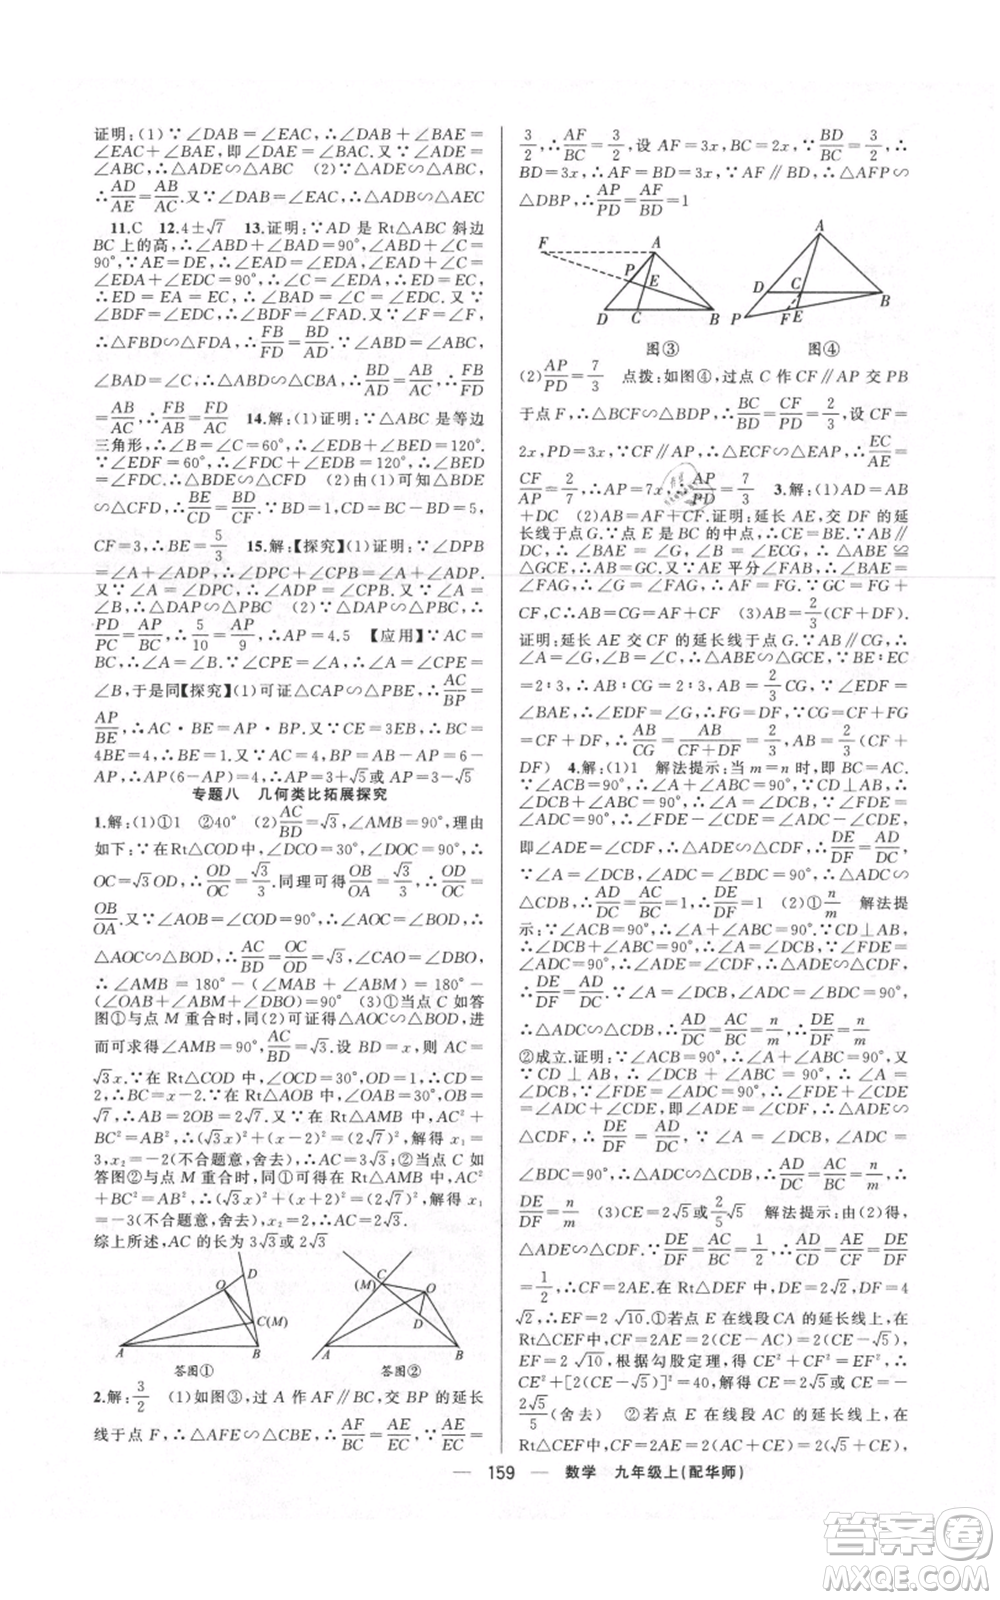 证明:(1)∵∠DAB=∠EAC,∴∠DAB+∠BAE=
∠EAC+∠BAE,即∠DAE=∠BAC.又∵∠ADE=
∠ABC,∴△ADE∽△ABC (2)∵△ADE∽△ABC,
∴AD/AE=AB/AC.又∵∠DAB=∠EAC,∴△ADB∽△AEC
11.C 12.4±√7 13.证明:∵AD 是 Rt△ABC 斜边
BC 上的高,∴∠ABD+∠BAD=90°,∠ABD+∠C=
90°.∵AE=DE,∴∠EAD=∠EDA,∴∠BAD+
∠EDA+∠EDC=90°,∴∠C=∠EDA,∴∠EDA=∠C,
∴ED=EA=EC,∴∠EDC=∠C,∴∠BAD=∠EDC.又∵
∠BDF=∠EDC,∴∠BDF=∠FAD.又∵∠F=∠F,∴
△FBD∽△FDA,∴FB/FD=BD/AD.∵∠ADB=∠BAC,
∠BAD=∠C,∴△ABD∽△CBA,∴BD/AD=AB/AC,∴FB/FD=
AB/AC,∴FB/AB=FD/AC 14.解:(1)证明:∵△ABC 是等边
三角形,∴∠B=∠C=60°,∴∠EDB+∠BED=120°.
∵∠EDF=60°,∴∠EDB+∠FDC=120°,∴∠BED
=∠FDC,∴△BDE∽△CFD (2)由(1)可知△BDE
∽△CFD,∴BE/CD=BD/CF.∵BD=1,∴CD=BC-BD=5,
CF=3,∴BE=5/3 15.解:【探究】(1)证明:∵∠DPB
=∠A+∠ADP,∴∠DPC+∠CPB=∠A+∠ADP.
又∵∠A=∠DPC,∴∠CPB=∠ADP.
又∵∠A=∠B,∴△DAP∽△PBC (2)∵△DAP∽△PBC,∴
PD/PC=AP/BC,∴5/10=AP/9,∴AP=4.5 【应用】∵AC=
BC,∴∠A=∠B.∵∠CPE=∠A,∴∠A=∠CPE=
∠B,于是同【探究】(1)可证△CAP∽△PBE,∴AC/BP=
AP/BE,∴AC·BE=AP·BP.又∵CE=3EB,∴BC=
4BE=4,∴BE=1,∴AC=BC=4.∵BP=AB-AP=6-
AP,∴AP(6-AP)=4,∴AP=3+√5或AP=3-√5
专题八 几何类比拓展探究
1.解:(1)①1 ②40° (2)AC/BD=√3,∠AMB=90°,理由
如下:∵在Rt△COD中,∠DCO=30°,∠DOC=90°,∴
OC=√3OD,∴OD/OC=√3/3.同理可得OB/OA=√3/3,∴OD/OC=
OB/OA.又∵∠AOB=∠COD=90°,∴∠AOC=∠BOD,∴
△AOC∽△BOD,∴AC/BD=OC/OD=√3,∠CAO=∠DBO,
∴∠AMB=180°-(∠MAB+∠ABM)=180°-
(∠OAB+∠ABM+∠DBO)=90° (3)①当点 C 如答
图①与点 M 重合时,同(2)可证得△AOC∽△BOD,进
而可求得∠AMB=90°,AC/BD=√3.设 BD=x,则 AC=
√3x.∵在Rt△COD中,∠OCD=30°,OD=1,∴CD=
2,BC=x-2.∵在Rt△AOB中,∠OAB=30°,OB=
√7,∴AB=2OB=2√7,∴在Rt△AMB中,AC²+
BC²=AB²,∴(√3x)²+(x-2)²=(2√7)²,解得x₁=
3,x₂=-2(不合题意,舍去),∴AC=3√3;②当点 C 如
答图②与点 M 重合时,同①可得在Rt△AMB中,AC²
+BC²=AB²,∴(√3x)²+(x+2)²=(2√7)²,解得 x₁
=-3(不合题意,舍去),x₂=2,∴AC=2√3.
综上所述,AC 的长为 3√3或 2√3
A
B
C(M)
D
O
答图①
A
B
C
(M)
D
O
答图②
2.解:3/2 (1)如图③,过 A 作 AF∥BC,交 BP 的延长
线于点 F,∴△AFE∽△CBE,∴AF/BC=AE/EC.∵AE/EC=
3/2,∴AF/BC=3/2,∴设 AF=3x,BC=2x.∵BD/BC=3/2,∴
BD=3x,∴AF=BD=3x,又∵AP∥BD,∴△AFP∽
△DBP,∴AP/PD=AF/BD=1
F
A
P
E
D
C
B
图③
A
D
C
B
P
F
E
图④
(2)AP/PD=7/3 点拨:如图④,过点 C 作 CF∥AP 交 PB
于点 F,∴△BCF∽△BDP,∴BC/BD=CF/PD=2/3,设 CF=
2x,PD=3x,∵CF∥PA,∴△ECF∽△EAP,∴EC/AE=
CF/AP=2/7,∴AP=7x,∴AP/PD=7/3 3.解:(1)AD=AB
+DC (2)AB=AF+CF.证明:延长 AE,交 DF 的延
长线于点G.∵点 E 是 BC 的中点,∴CE=BE.∵AB∥
DC,∴∠BAE=∠G.又∵∠AEB=∠GEC,∴△AEB≌
△GEC,∴AB=GC.∵AE平分∠FAB,∴∠BAG=
∠FAG,∴∠FAG=∠G,∴FA=FG.∵CG=CF+
FG,∴AB=CG=AF+CF (3)AB=2/3(CF+DF).
证明:延长 AE 交 CF 的延长线于点 G.∵AB∥CG,∴
∠A=∠G,∴△ABE∽△GCE,∵BE∶EC
=2∶3,∴AB∶CG=2∶3,∴AB=2/3CG.∵∠EDF=
∠BAE,∴∠EDF=∠G,∴FG=DF,∴CG=CF+
DF,∴AB/CG=AB/(CF+DF)=2/3,∴AB=2/3(CF+
DF) 4.解:(1)1 解法提示:当 m=n 时,即 BC=AC.
∵∠BCA=90°,∴∠A=∠ABC=45°.∵CD⊥AB,∴
∠DCB=45°=∠A.∵∠FDE=∠ADC=90°,
∴∠FDE-∠CDE=∠ADC-∠CDE,
即∠ADE=∠CDF,∴△ADE∽△CDF,∴DE/DF=AD/DC.
∵∠A=∠DCA=45°,∴AD=
CD,∴AD/DC=AC/BC=1,∴DE/DF=1 (2)①n/m 解法提
示:∵∠ACB=90°,∴∠A+∠ABC=90°.∵CD⊥AB,
∴∠DCB+∠ABC=90°,∴∠A=∠DCB.∵∠FDE=
∠ADC=90°,∴∠FDE-∠CDE=∠ADC-∠CDE,
即∠ADE=∠CDF,∴△ADE∽△CDF,
∴DE/DF=AD/DC.∵∠A=∠DCB,∠ADC=∠BDC=90°,
∴△ADC∽△CDB,∴AD/DC=AC/BC=n/m,∴DE/DF=n/m
②成立.证明:∵∠ACB=90°,∴∠A+∠ABC=90°,又
∵CD⊥AB,∴∠DCB+∠ABC=90°,∴∠A=∠DCB.
∵∠FDE=∠ADC=90°,∴∠FDE+∠CDE=
∠ADC+∠CDE,即∠ADE=∠CDF,∴△ADE∽
△CDF,∴DE/DF=AD/DC.∵∠A=∠DCB,∠ADC=
∠BDC=90°,∴△ADC∽△CDB,∴AD/DC=AC/BC=n/m,∴
DE/DF=n/m (3)CE=2√5或2/5√5 解法提示:由(2)得,
△ADE∽△CDF.∵DE/DF=AC/BC=1/2,∴AD/CD=AE/CF=DE/DF
=1/2,∴CF=2AE.在Rt△DEF中,DE=2√2,DF=4
√2,∴EF=2√10.①若点 E 在线段 CA 的延长线上,在
Rt△CEF中,CF=2AE=2(CE-AC)=2(CE-√5),
EF=2√10,根据勾股定理,得 CE²+CF²=EF²,∴
CE²+[2(CE-√5)]²=40,解得CE=2√5或CE=-
2√5/5(舍去) ②若点 E 在线段 AC 的延长线上,在
Rt△CEF中,CF=2AE=2(AC+CE)=2(√5+
— 159 — 数学 九年级上(配华师)
答案卷
MXQE.COM